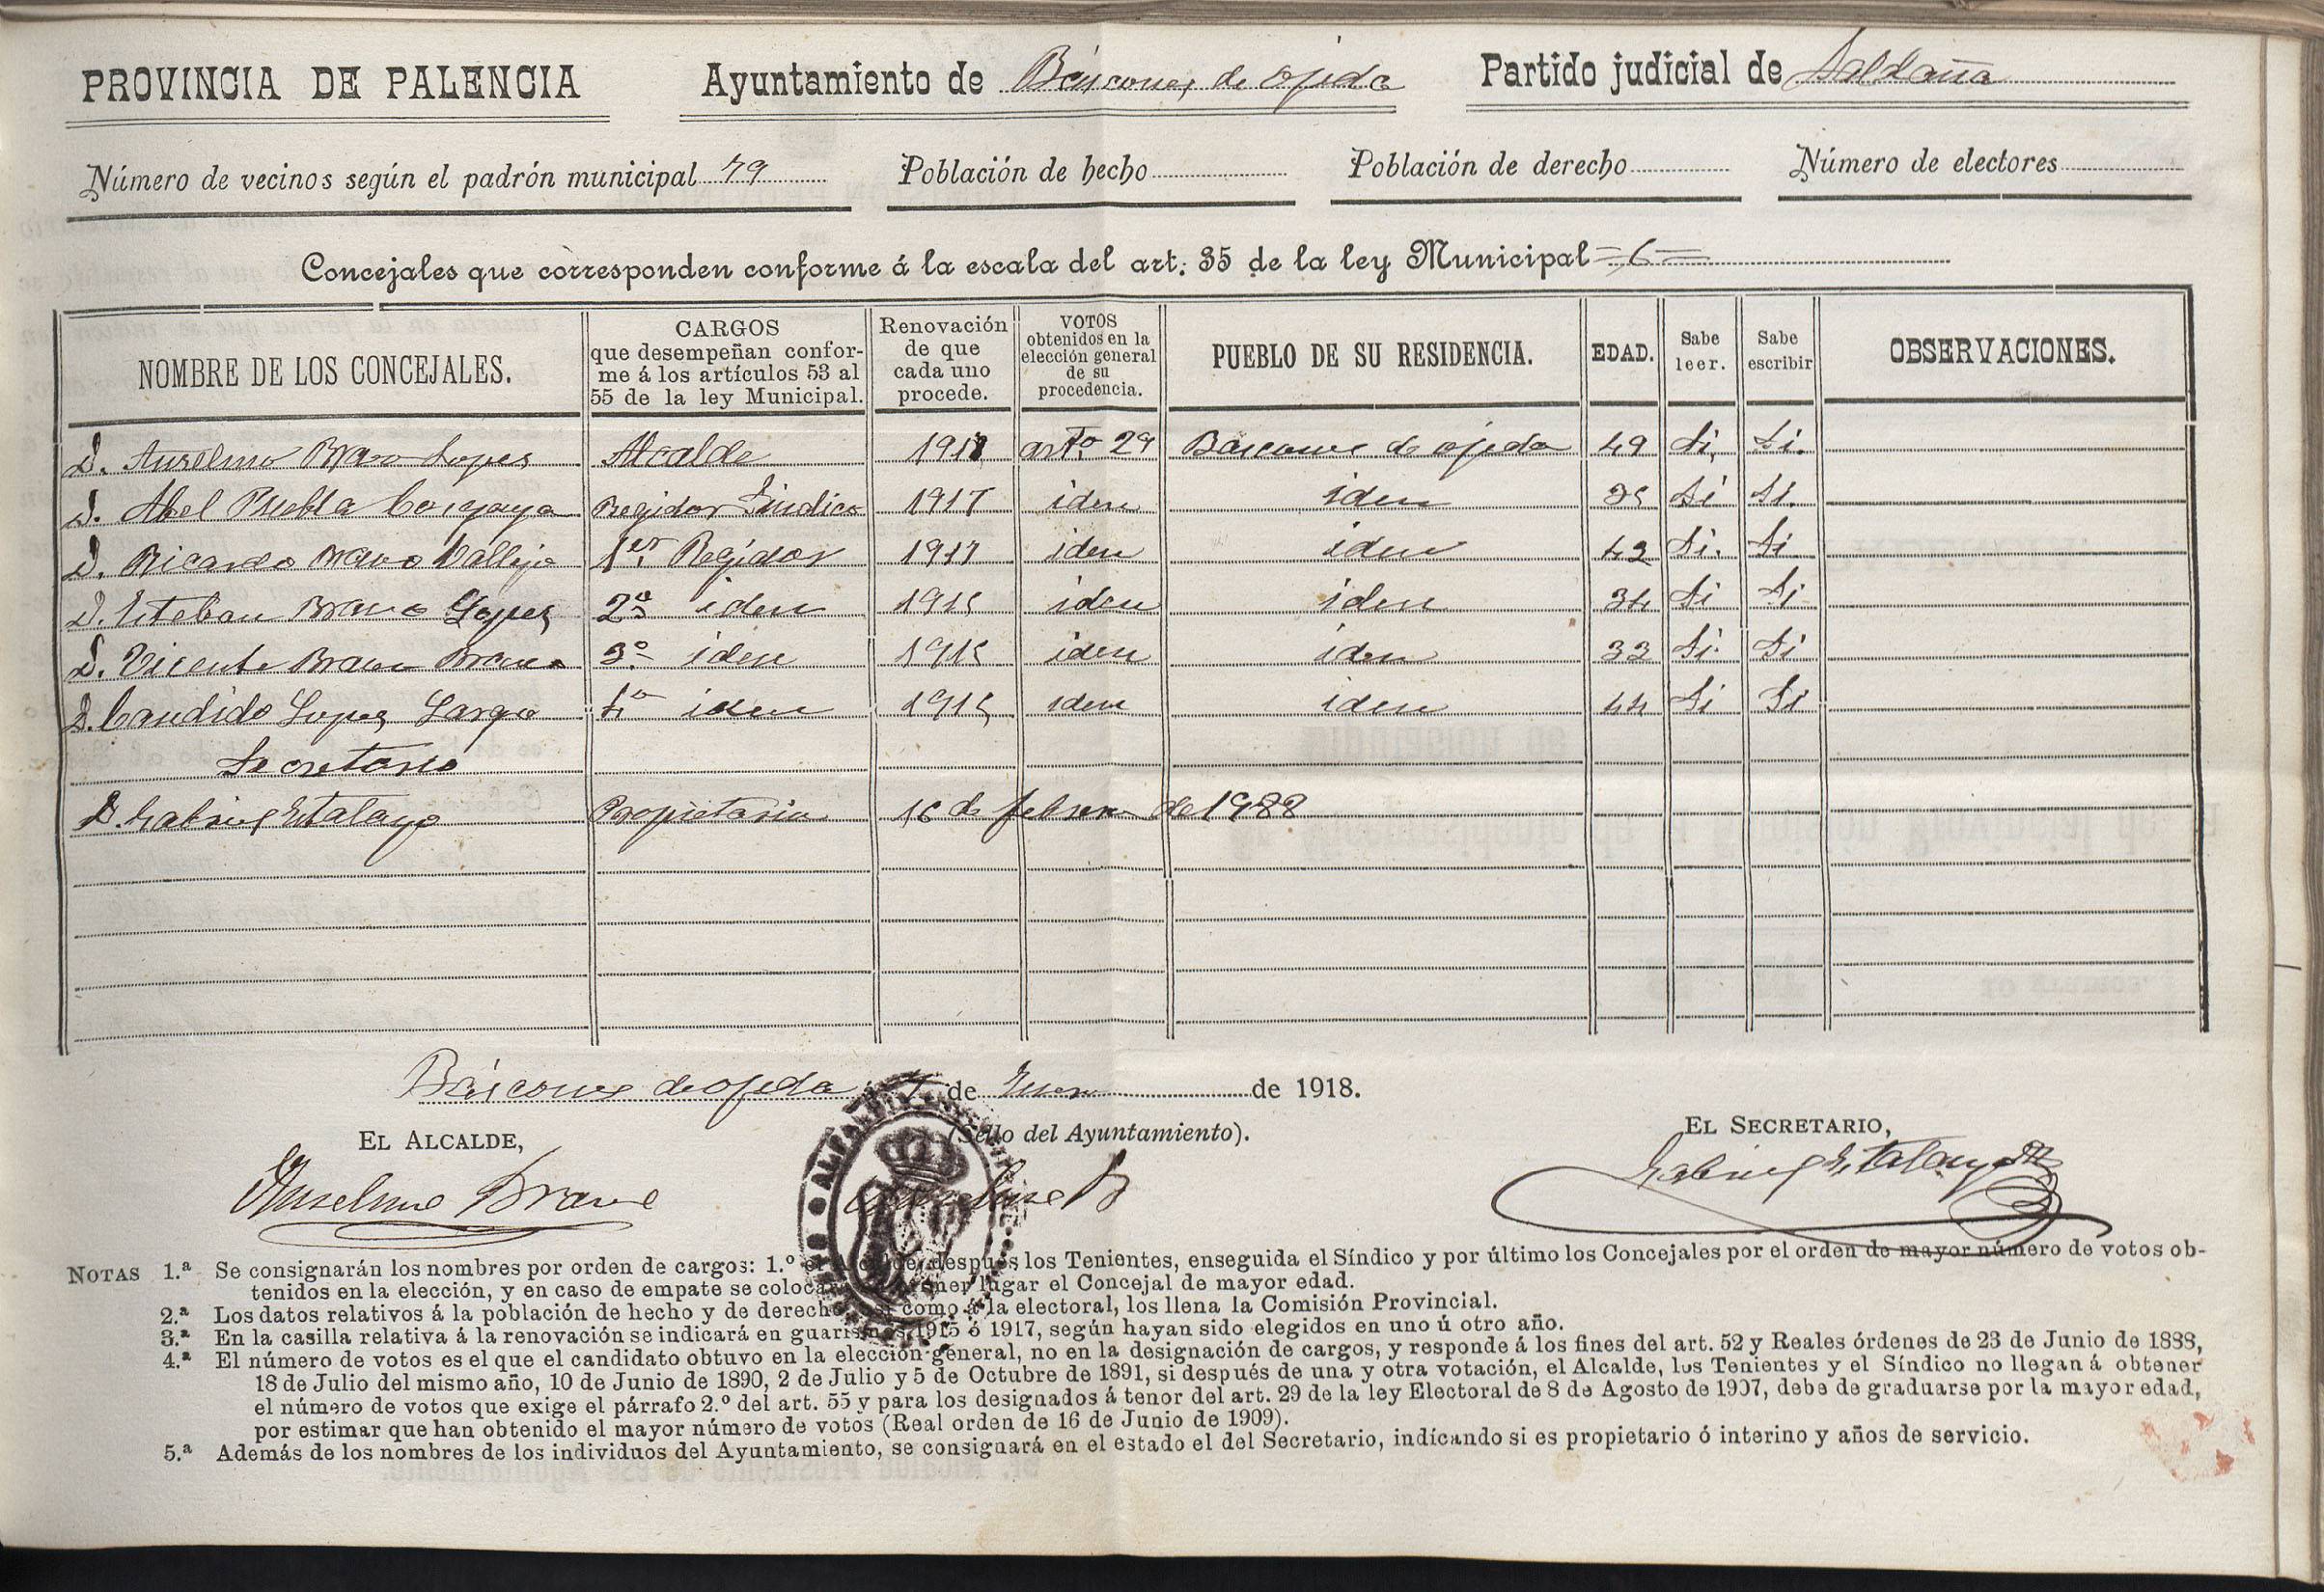 PROVINCIA DE PALENCIA Ayuntamiento de Báscones de Ojeda Partido judicial de Saldaña
Número de vecinos según el padrón municipal 79 Población de hecho Población de derecho Número de electores
Concejales que corresponden conforme á la escala del art. 35 de la ley Municipal =6=
NOMBRE DE LOS CONCEJALES. CARGOS que desempeñan conforme á los artículos 53 al 55 de la ley Municipal. Renovación de que cada uno procede. VOTOS obtenidos en la elección general de su procedencia. PUEBLO DE SU RESIDENCIA. EDAD. Sabe leer. Sabe escribir OBSERVACIONES.
D. Anselmo Bravo Lopez Alcalde 1917 artº 29 Báscones de Ojeda 49 Si, Si.
D. Abel Puebla Regidor Sindico 1917 iden iden 35 Si Si.
D. Ricardo Bravo Vallejo 1er Regidor 1917 iden iden 42 Si. Si
D. Esteban Bravo Lopez 2º iden 1915 iden iden 34 Si Si
D. Vicente Bravo Bravo 3º iden 1915 iden iden 33 Si Si
D. Candido Lopez Largo 4º iden 1915 iden iden 44 Si Si
Secretario
D. Gabriel Estalayo Propietario 16 de febrero de 1988
Báscones de Ojeda 1 de Enero de 1918.
EL ALCALDE, (Sello del Ayuntamiento). EL SECRETARIO,
Anselmo Bravo Gabriel Estalayo
NOTAS 1.ª Se consignarán los nombres por orden de cargos: 1.º el Alcalde, después los Tenientes, enseguida el Síndico y por último los Concejales por el orden de mayor número de votos ob-
tenidos en la elección, y en caso de empate se colocará en primer lugar el Concejal de mayor edad.
2.ª Los datos relativos á la población de hecho y de derecho, así como á la electoral, los llena la Comisión Provincial.
3.ª En la casilla relativa á la renovación se indicará en guarismos 1915 ó 1917, según hayan sido elegidos en uno ú otro año.
4.ª El número de votos es el que el candidato obtuvo en la elección general, no en la designación de cargos, y responde á los fines del art. 52 y Reales órdenes de 23 de Junio de 1888,
18 de Julio del mismo año, 10 de Junio de 1890, 2 de Julio y 5 de Octubre de 1891, si después de una y otra votación, el Alcalde, los Tenientes y el Síndico no llegan á obtener
el número de votos que exige el párrafo 2.º del art. 55 y para los designados á tenor del art. 29 de la ley Electoral de 8 de Agosto de 1907, debe de graduarse por la mayor edad,
por estimar que han obtenido el mayor número de votos (Real orden de 16 de Junio de 1909).
5.ª Además de los nombres de los individuos del Ayuntamiento, se consignará en el estado el del Secretario, indicando si es propietario ó interino y años de servicio.